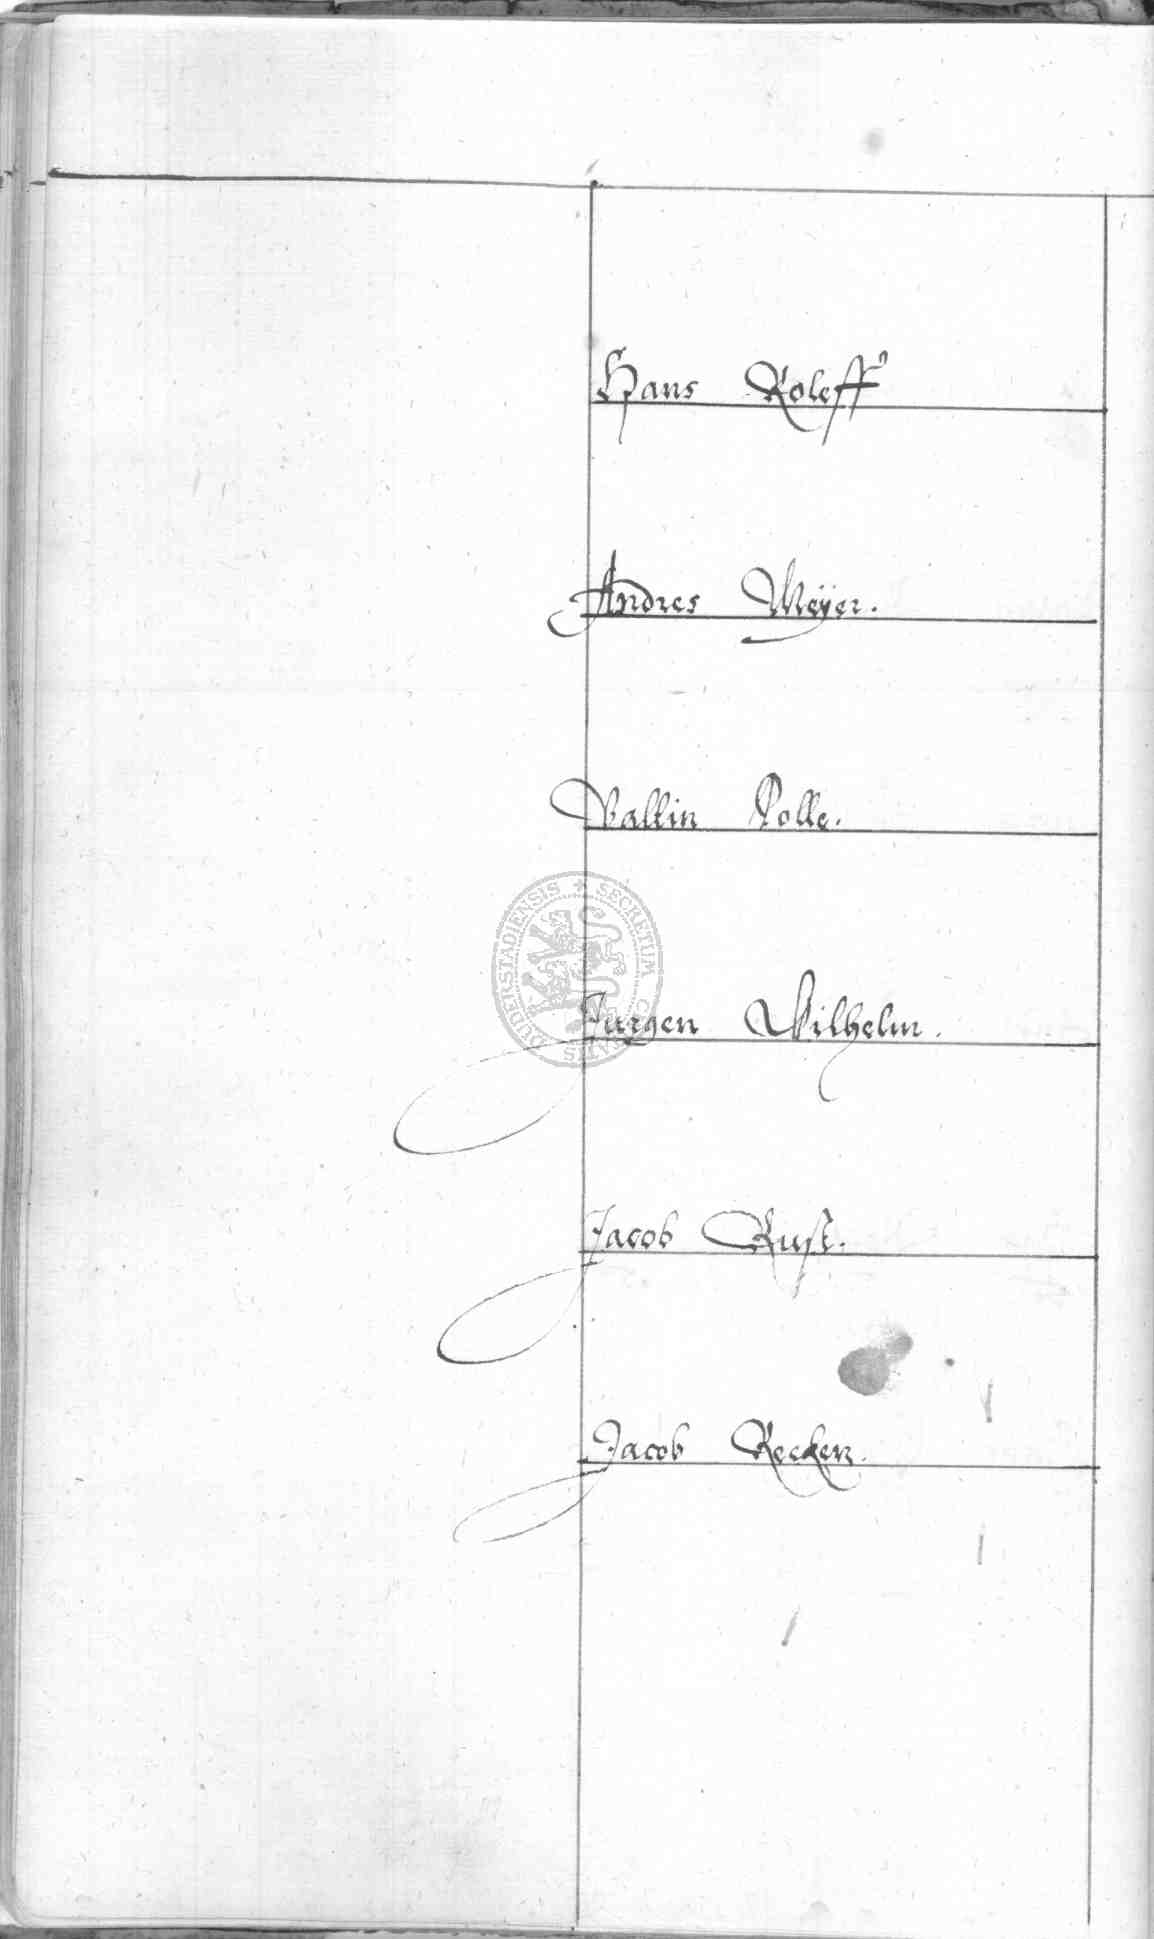 Hans Roleff
Andres Meÿer.
Valtin Polle.
Jurgen Wilhelm.
Jacob Rust.
Jacob Recken.
DUDERSTADIENSIS * SECRETUM CIVITATIS